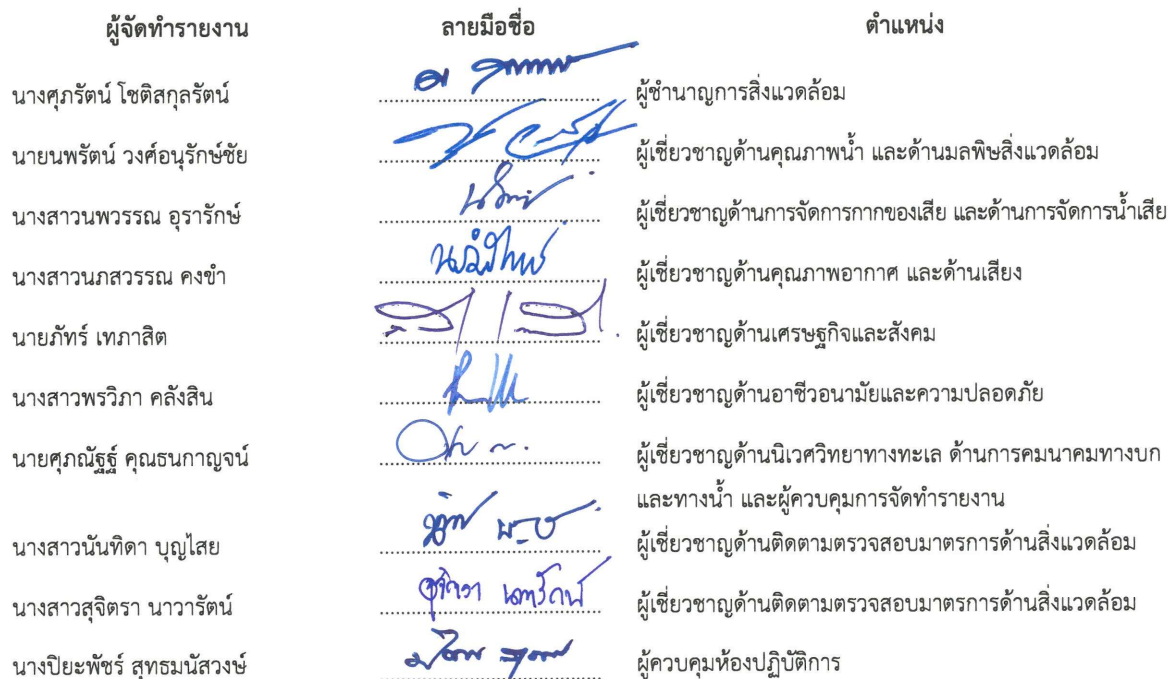 ผู้จัดทำรายงาน ลายมือชื่อ ตำแหน่ง
นางศุภรัตน์ โชติสกุลรัตน์ ผู้ชำนาญการสิ่งแวดล้อม
นายนพรัตน์ วงศ์อนุรักษ์ชัย ผู้เชี่ยวชาญด้านคุณภาพน้ำ และด้านมลพิษสิ่งแวดล้อม
นางสาวนพวรรณ อุรารักษ์ ผู้เชี่ยวชาญด้านการจัดการกากของเสีย และด้านการจัดการน้ำเสีย
นางสาวนภสวรรณ คงขำ ผู้เชี่ยวชาญด้านคุณภาพอากาศ และด้านเสียง
นายภัทร์ เทภาสิต ผู้เชี่ยวชาญด้านเศรษฐกิจและสังคม
นางสาวพรวิภา คลังสิน ผู้เชี่ยวชาญด้านอาชีวอนามัยและความปลอดภัย
นายศุภณัฐฐ์ คุณธนกาญจน์ ผู้เชี่ยวชาญด้านนิเวศวิทยาทางทะเล ด้านการคมนาคมทางบก
และทางน้ำ และผู้ควบคุมการจัดทำรายงาน
นางสาวนันทิดา บุญไสย ผู้เชี่ยวชาญด้านติดตามตรวจสอบมาตรการด้านสิ่งแวดล้อม
นางสาวสุจิตรา นาวารัตน์ สุจิตรา นาวารัตน์ ผู้เชี่ยวชาญด้านติดตามตรวจสอบมาตรการด้านสิ่งแวดล้อม
นางปิยะพัชร์ สุทธมนัสวงษ์ ผู้ควบคุมห้องปฏิบัติการ